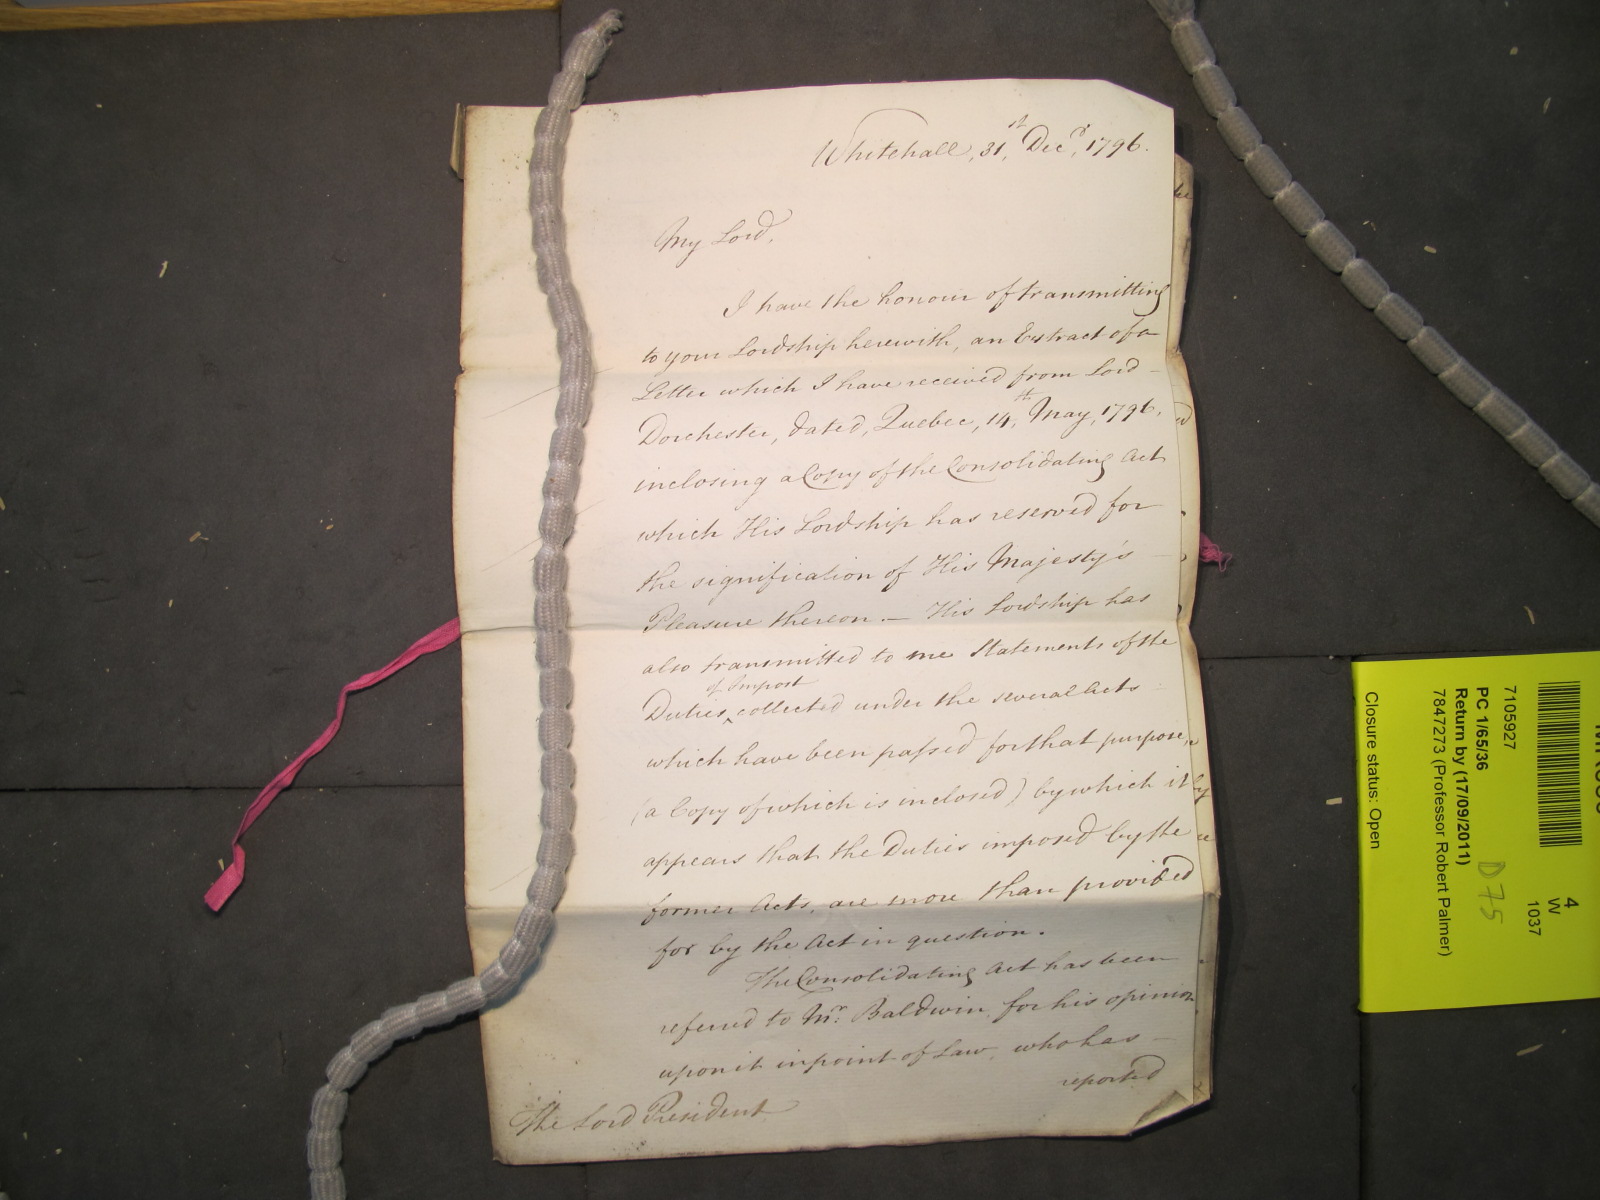 Whitehall, 31st Decr, 1796.
My Lord,
I have the honour of transmitting
to your Lordship herewith, an Extract of a
Letter which I have received from Lord
Dorchester, dated, Quebec, 14th May, 1796,
inclosing a Copy of the Consolidating Act
which His Lordship has reserved for
the signification of His Majesty's
Pleasure thereon. — His Lordship has
also transmitted to me Statements of the
of Impost
Duties ‸ collected under the several Acts
which have been passed for that purpose,
(a Copy of which is inclosed) by which it
appears that the Duties imposed by the
former Acts, are more than provided
for by the Act in question.
The Consolidating Act has been
referred to Mr. Baldwin, for his opinion
upon it in point of Law, who has —
reported
The Lord President
4
W
1037
7105927
PC 1/65/36
Return by (17/09/2011)
7847273 (Professor Robert Palmer)
D 75
Closure status: Open